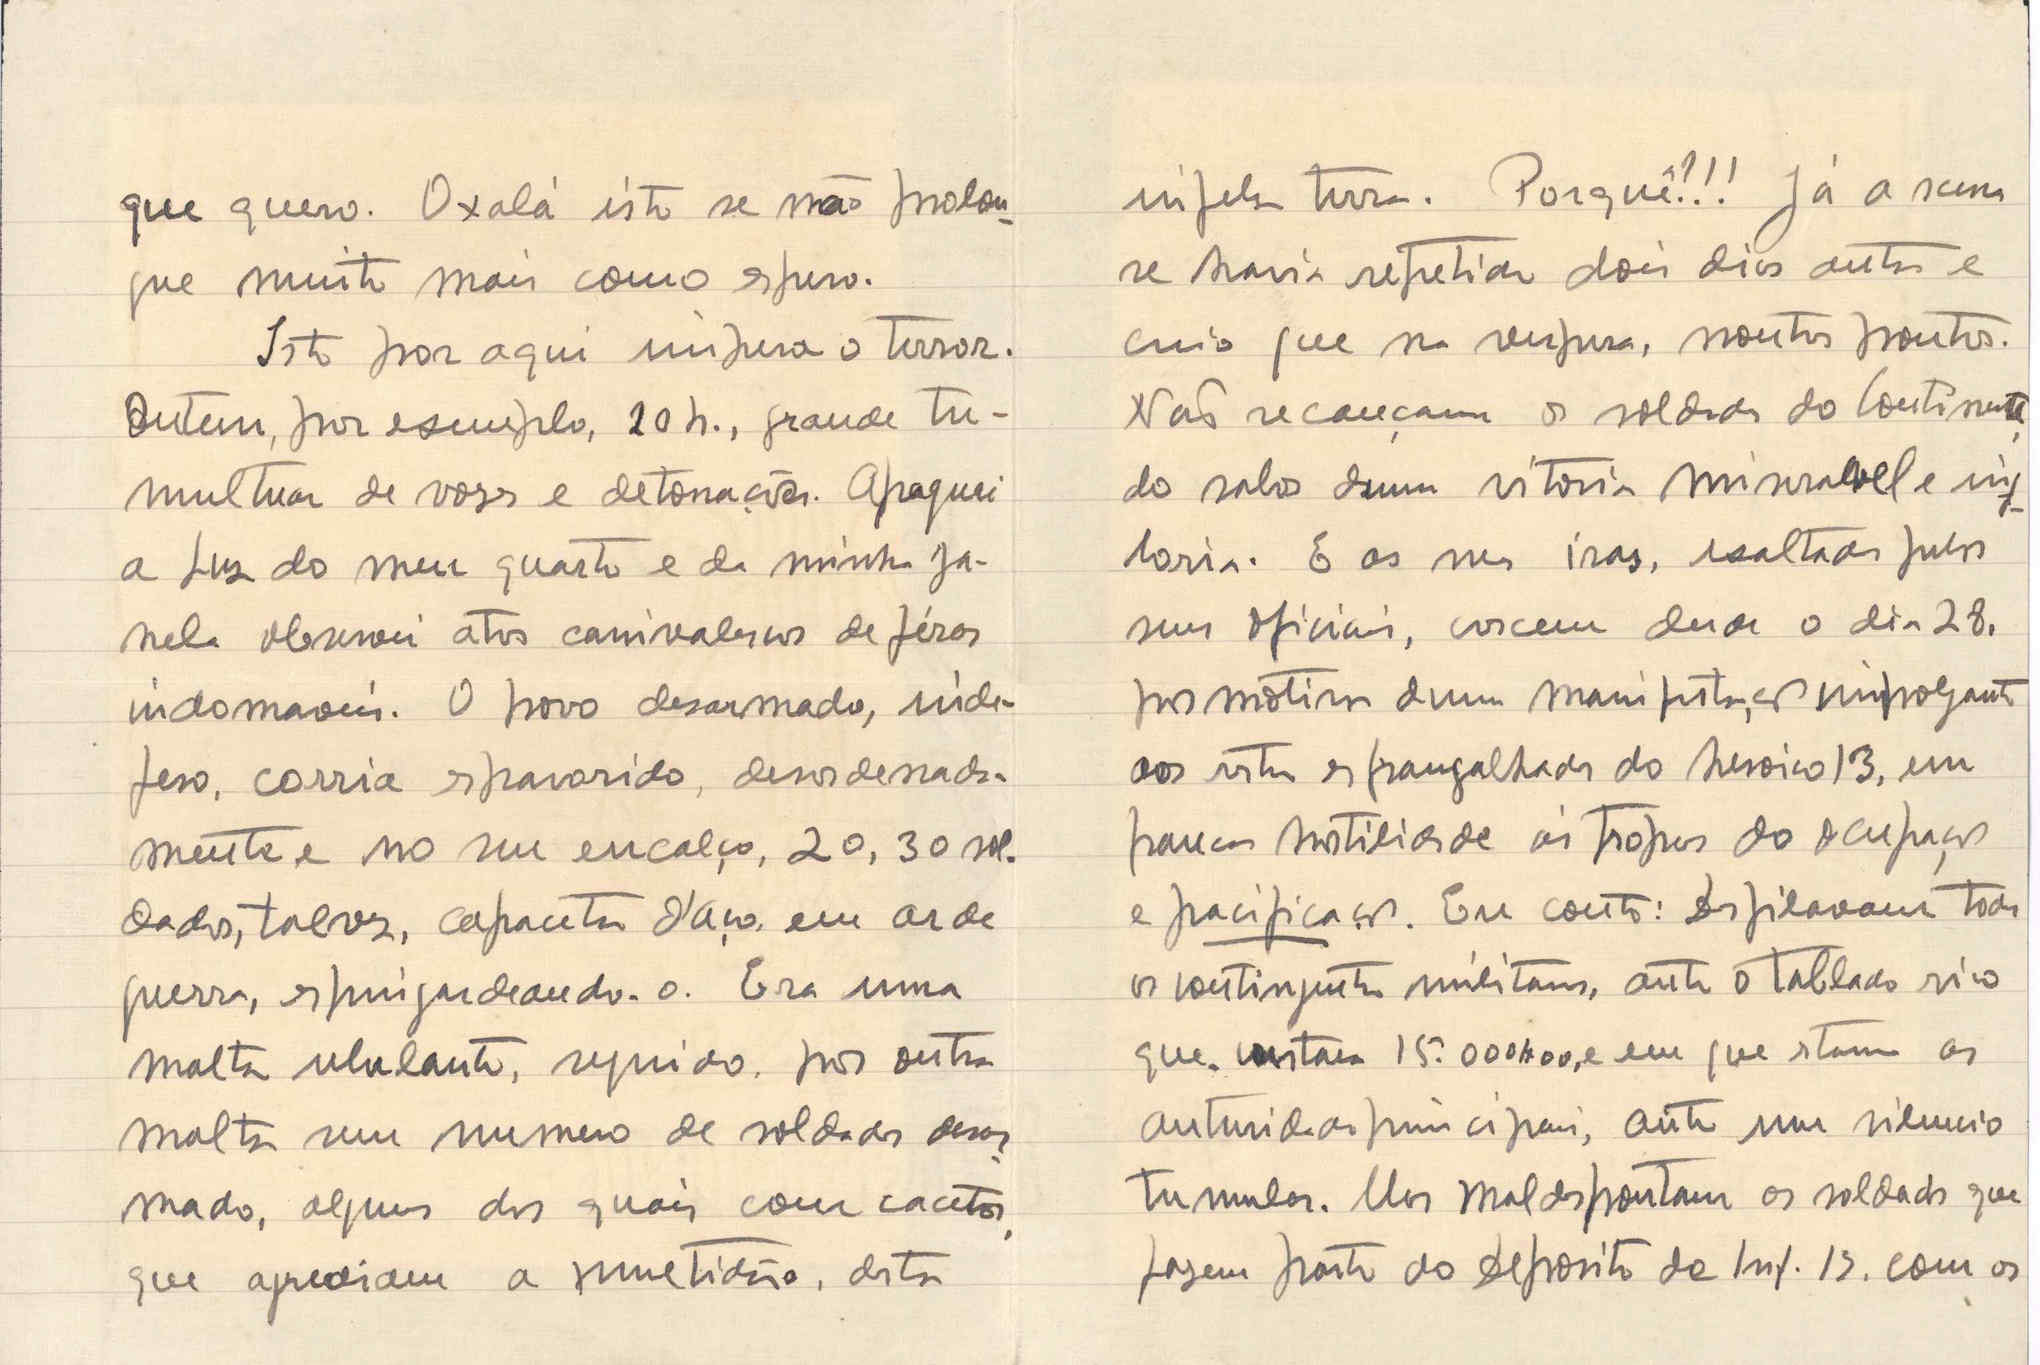 que quero. Oxalá isto se não prolon-
gue muito mais como espero.
Isto por aqui impera o terror.
Ontem, por exemplo, 20 h., grande tu-
multuar de vozes e detonações. Apaguei
a luz do meu quarto e da minha ja-
nela observei atos canivalescos de féras
indomaveis. O povo desarmado, inde-
feso, corria espavorido, desordenada-
mente e no seu encalço, 20, 30 sol-
dados, talvez, capacetes d'aço, em ar de
guerra, espingardeando-o. Era uma
malta ululante, seguido, por outra
malta sem numero de soldados desar-
mado, alguns dos quais com cacetes,
que agrediam a multidão, desta
infeliz terra. Porquê?!!! Já a scena
se havia repetido dois dias antes e
creio que na vespera, noutros pontos.
Não se cançam os soldados do Continente,
do sabor duma vitoria miseravel e ing-
loria. E as suas iras, exaltadas pelos
seus oficiais, crescem desde o dia 28,
por motivo duma manifestação impolgante
aos restos esfrangalhados do heroico 13, em
franca hostilidade ás tropas do ocupação
e pacificação. Eu conto: Desfilavam todos
os contingentes militares, ante o tablado rico
que custara 15.000$00, e em que stavam as
autoridades principais, ante um silencio
tumular. Mas mal despontam os soldados que
fazem parte do Deposito de Inf. 13. com os